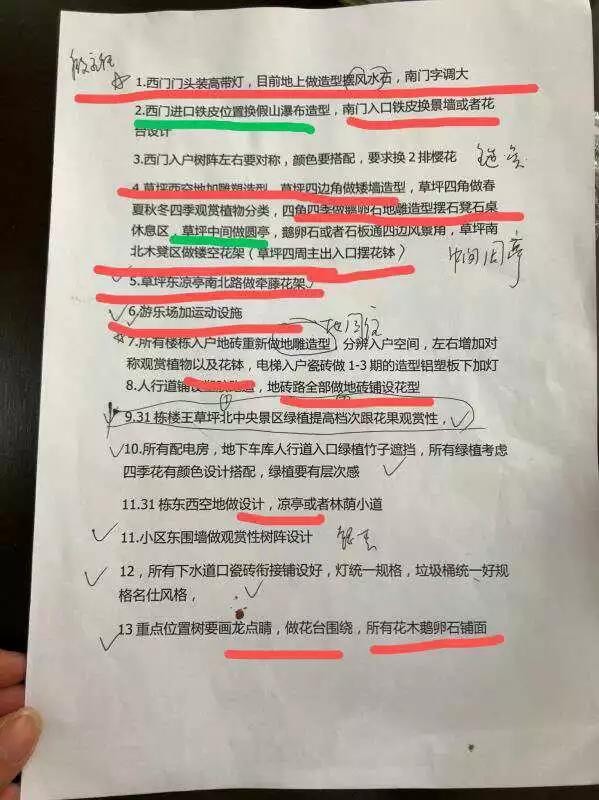 1.西门门头装高带灯，目前地上做造型摆风水石，南门字调大
2.西门进口铁皮位置换假山瀑布造型，南门入口铁皮换景墙或者花
台设计
3.西门入户树阵左右要对称，颜色要搭配，要求换2排樱花
4.草坪西空地加雕塑造型，草坪四边角做矮墙造型，草坪四角做春
夏秋冬四季观赏植物分类，四角四季做鹅卵石地雕造型摆石凳石桌
休息区，草坪中间做圆亭，鹅卵石或者石板通四边风景角，草坪南
北木凳区做镂空花架（草坪四周主出入口摆花钵）
中间同亭
5.草坪东凉亭南北路做牵藤花架）
6.游乐场加运动设施
7.所有楼栋入户地砖重新做地雕造型，分辨入户空间，左右增加对
称观赏植物以及花钵，电梯入户瓷砖做1-3期的造型铝塑板下加灯
8.人行道铺设塑胶跑道，地砖路全部做地砖铺设花型
9.31栋楼王草坪北中央景区绿植提高档次跟花果观赏性，
10.所有配电房，地下车库人行道入口绿植竹子遮挡，所有绿植考虑
四季花有颜色设计搭配，绿植要有层次感
11.31栋东西空地做设计，凉亭或者林荫小道
11.小区东围墙做观赏性树阵设计
12，所有下水道口瓷砖衔接铺设好，灯统一规格，垃圾桶统一好规
格名仕风格，
13重点位置树要画龙点睛，做花台围绕，所有花木鹅卵石铺面